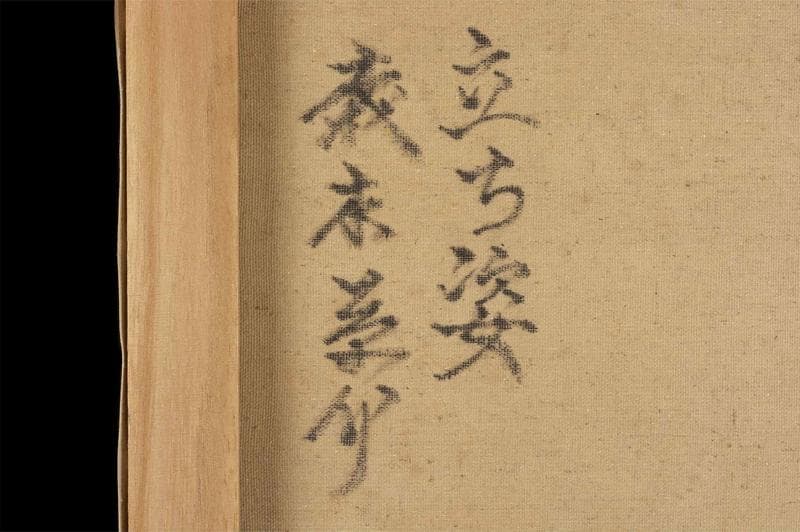 立ち姿
森本草介